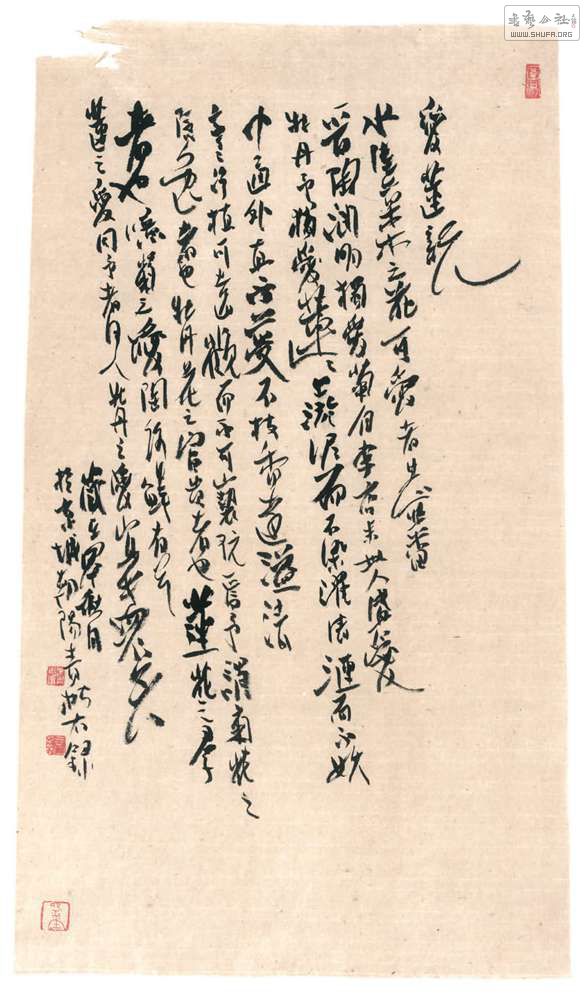 书艺公社
WWW.SHUFA.ORG
愛蓮說
水陸草木之花可愛者甚蕃
晉陶淵明獨愛菊自李唐來世人盛愛
牡丹予獨愛蓮之出淤泥而不染濯清漣而不妖
中通外直不蔓不枝香遠益清
亭亭淨植可遠觀而不可褻玩焉予謂菊花之
隱逸者也牡丹花之富貴者也蓮花之君子
者也噫菊之愛陶後鮮有聞
蓮之愛同予者何人牡丹之愛宜乎眾矣
歲在秋月
於京城朝陽